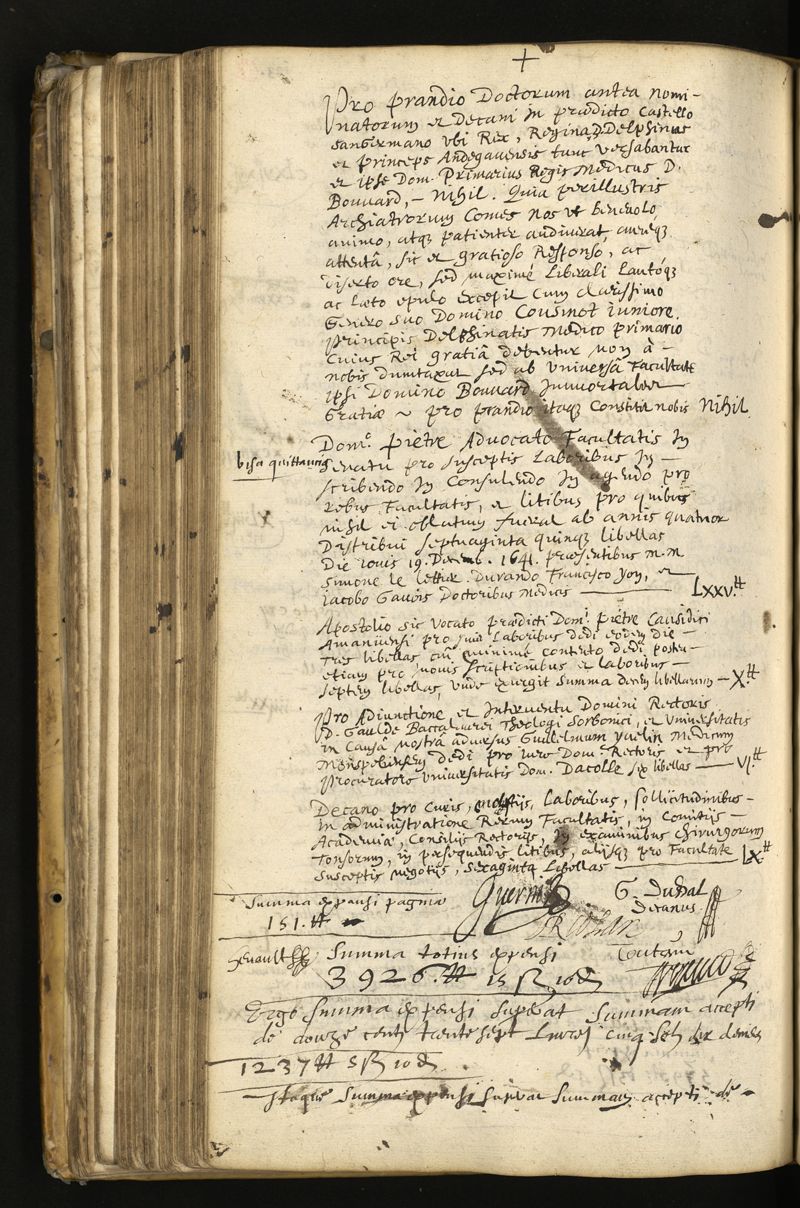 Pro prandio Doctorum antea nomi-
natorum et Decani in prædicto Castello
sangermano vbi Rex, Regina, D. Delphinus
et princeps Andegauensis tunc versabantur
et ipse Dom. Primarius Regis Medicus D.
Bouuard, – Nihil. Quia perillustris
Archiatrorum Comes nos vt beneuolo
animo, atq; patienter audiuerat, aureq;
attentâ, sic et gratioso Responso, ac
diserto ore, sed maximè Liberali Lautóq;
ac Læto epulo excepit cum clarissimo
Genero suo Domino Cousinot iuniore,
Principis Delphinatis Medico primario
Cuius Rei gratiâ debentur non à –
nobis dumtaxat sed ab vniuersâ Facultate
ipsi Domino Bouuard Immortales
Gratiæ ~ pro prandio itaq; Constitit nobis Nihil.
Dom.º piètre Aduocato Facultatis In
visa quittancia
Senatu pro susceptis Laboribus In –
scribendo In Consulendo In agendo pro
rebus Facultatis, et litibus pro quibus
nihil ei oblatum fuerat ab annis quatuor
Distribui septuaginta quinq; libellas
Die Iouis 19. Decemb. 1641. præsentibus M.M.
Simone le Letier. Durando Francisco yon, et
Iacobo Gauois Doctoribus Medicis — LXXV.tt
Apostolio sic vocato prædicti Dom.i piètre Causidici
Amanüensi pro suis Laboribus dedi eodem die –
Tres libellas cui minimè contento dedi postea –
etiam pro nouis scriptionibus et laboribus –
septem libellas, vnde exurgit summa decem libellarum – X.tt
Pro Adiunctione et Interuentu Domini Rectoris
D. Gaulde Baccalaurei Theologi Sorbonici, et vniuersitatis
in Causâ nostrâ aduersus Guillelmum yuelin Medicum
Monspeliensem dedi pro iure Dom. Rectoris et pro
Procuratore vniuersitatis Dom. Dacolle sex libellas — VI.tt
Decano pro Curis, molestijs, Laboribus, sollicitudinibus –
in administratione Rerum Facultatis, in Comitijs –
Academiæ, Consilijs Rectorijs, in examinibus chirurgorum
Tonsorum, in persequendis litibus, alijsq; pro Facultate
susceptis negotijs, sexaginta Libellas — LX.tt
Summa expensi paginæ
151.tt
G. Duual
Decanus
Summa totius expensi
3926.tt 15 ß 10 d
Ergo summa expensi superat summam accepti
de douze cents trente sept Liures cinq sols dix deniers
1237tt 5 ß 10 d
Itaque summa expensi superat summam accepti de –